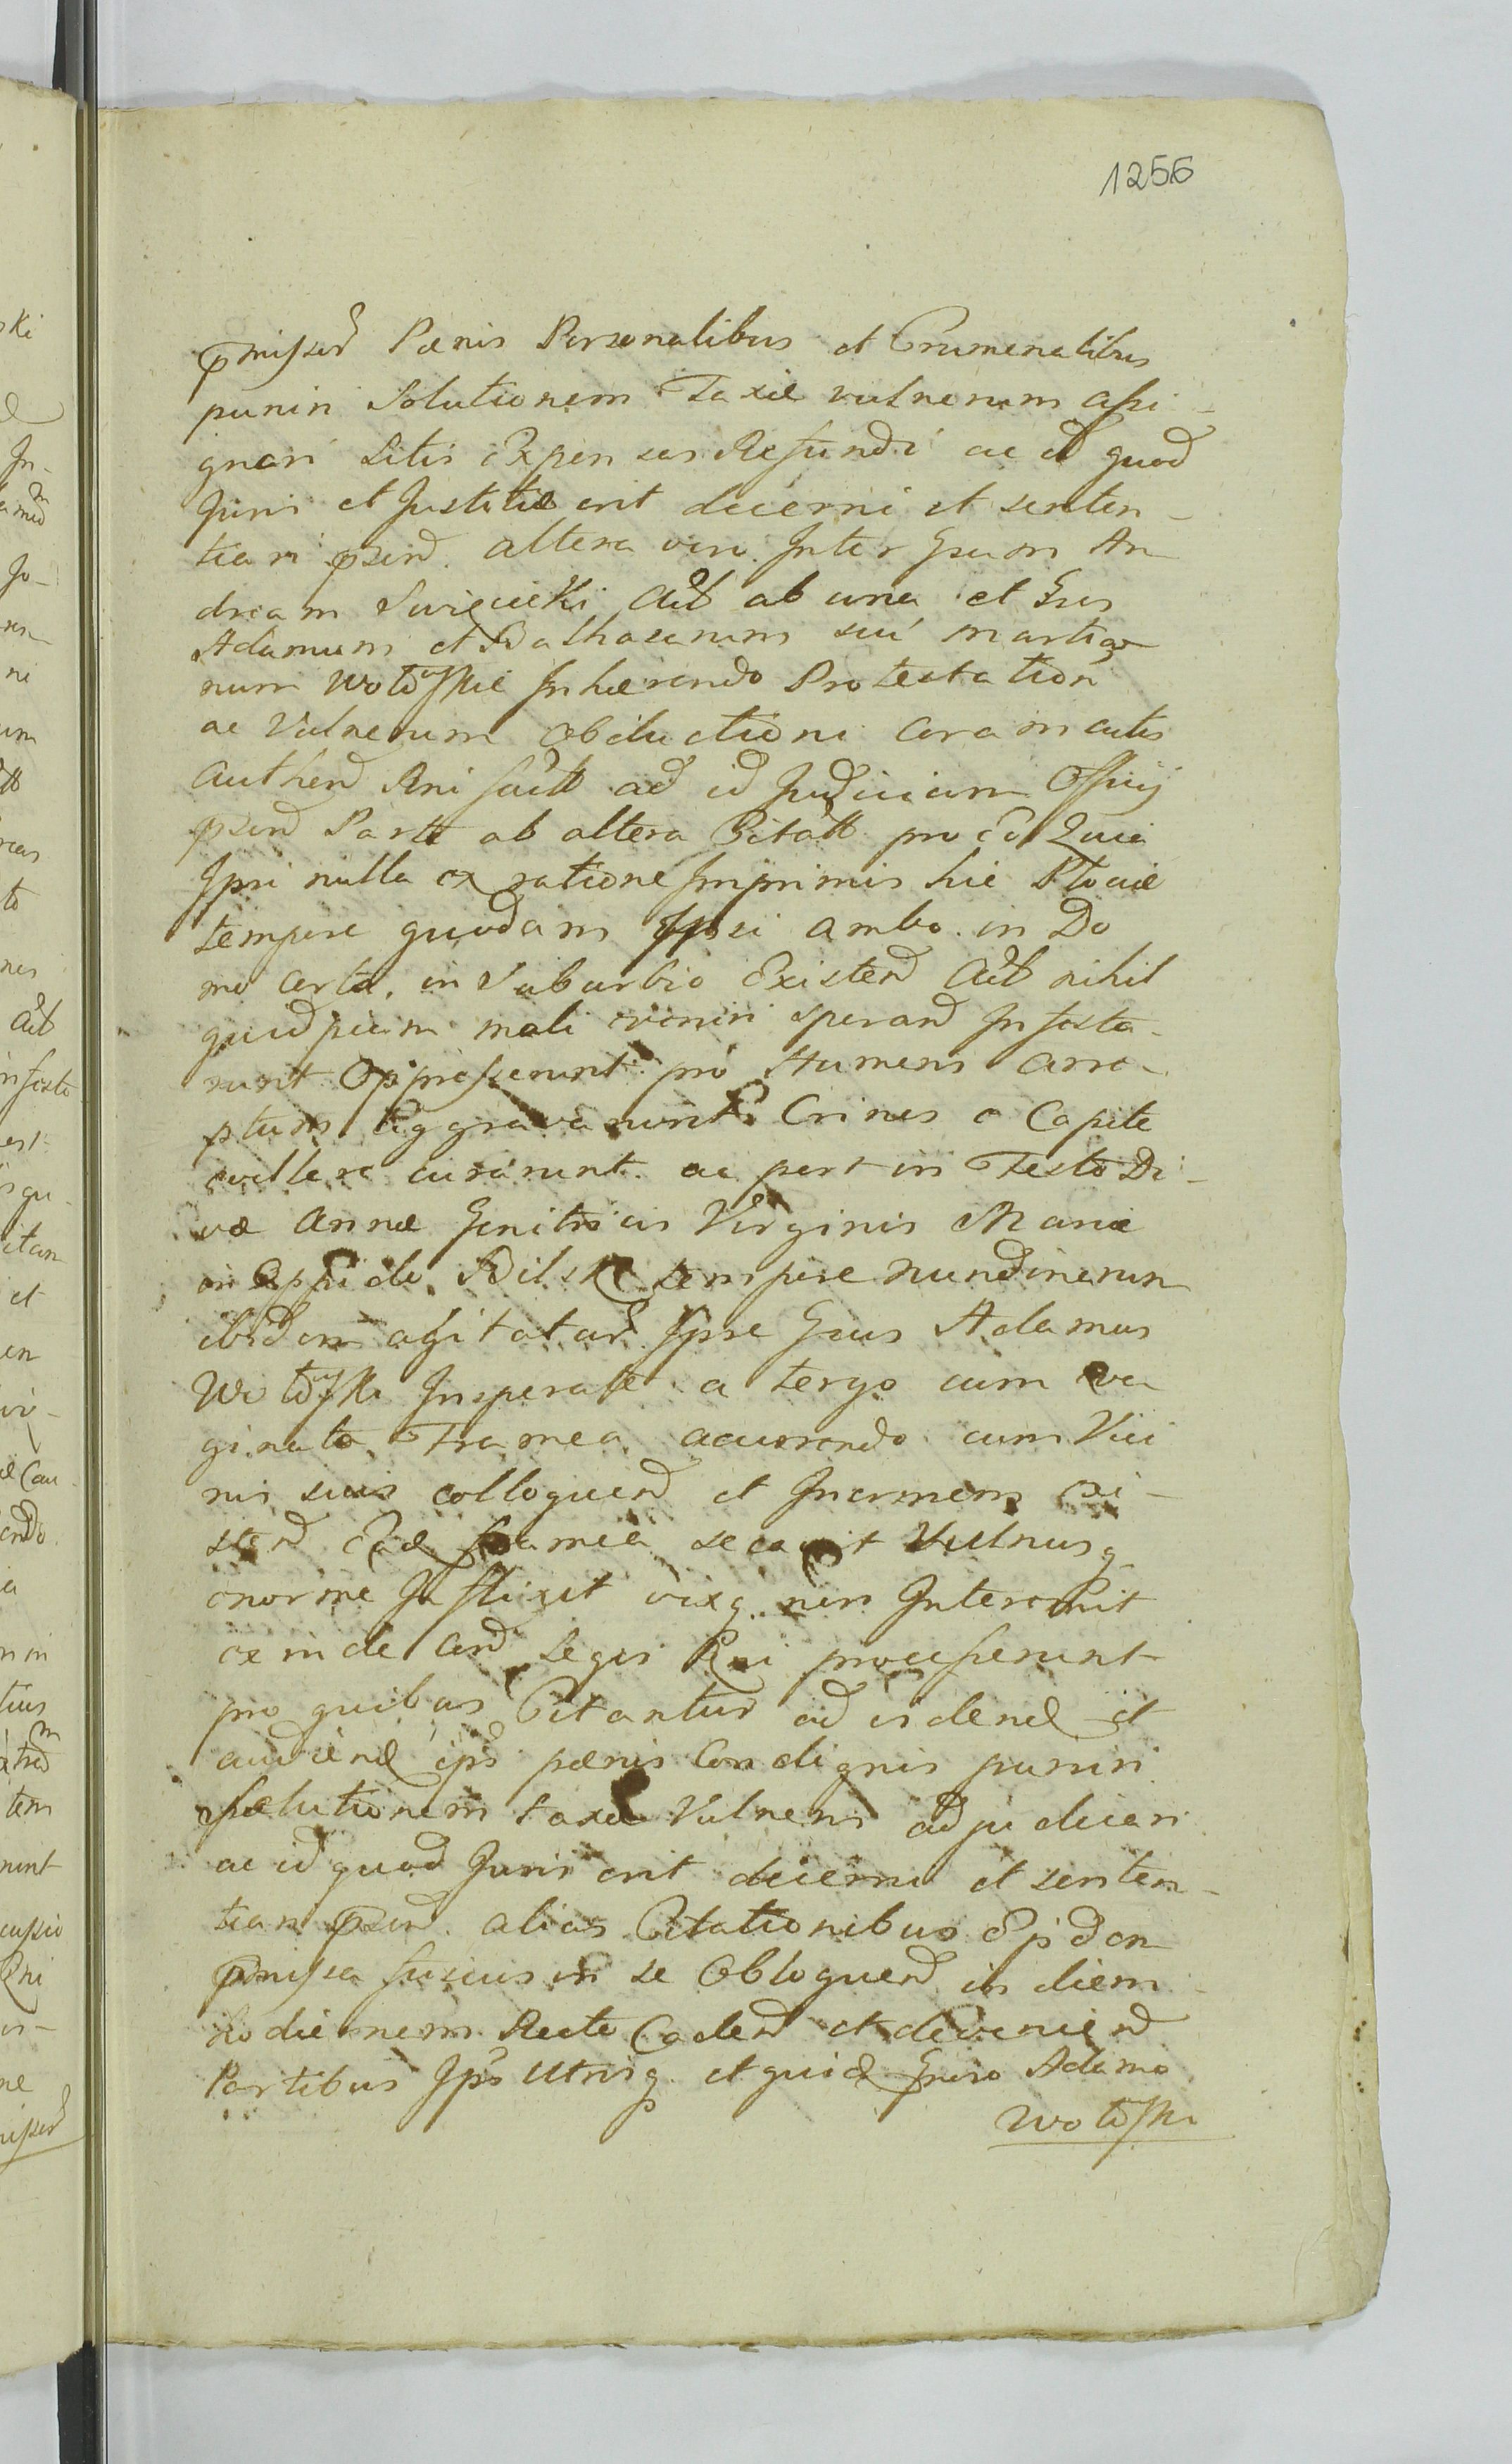 1256
præmissor Pænis Personalibus et Crumenalibus
puniri Solutionem Taxæ vulnerum assi-
gnari Litis Expensas Refundi ac id quod
Juris et Justitiæ erit decerni et senten-
tiari præsen. altera vero Inter Gsum An
dream Święcicki Act ab una et Gsos
Adamum et Balthasarum seu Marti
num Wotowskie Inhærendo Protestation
ac Vulnerum Obductioni Coram actis
Authen Rni fact ad id Judicium Officij
præsen Parte ab altera Citatt pro Eo Quia
Ipsi nulla ex ratione Inprimis hic Plociæ
tempore quodam Ipsi ambo in Do
mo certa, in Suburbio Existen Act nihil
quidpiam mali eveniri speran Infesta-
runt Oppresserunt pro Humeris arre-
ptum Aggravarunt Crines a Capite
evellere curarunt ac post in Festo Di-
væ Annæ Genitricis Virginis Mariæ
in Oppido Bilsk tempore nundinarum
ibidem agitatar Ipse Gsus Adamus
Wotowski Insperate a tergo cum eva
ginata Framea accurendo cum Vici
nis suis colloquen et Inermem exi-
sten Eade framea secavit Vulnusq
enorme Inflixit vixq non Interemit
exinde cen Legis Rei processerunt
pro quibus Citantur ad viden et
audien ips pænis Condignis puniri
solutionem taxæ Vulneris adjudicari
ac id quod Juris erit decerni et senten-
tiari præsen. alias Citationibus Epdem
præmissa fusius in se Obloquen in diem
hodiernem Recte Caden et devenien
Partibus Ips Utrisq et quid Gnroso Adamo
Wotowski